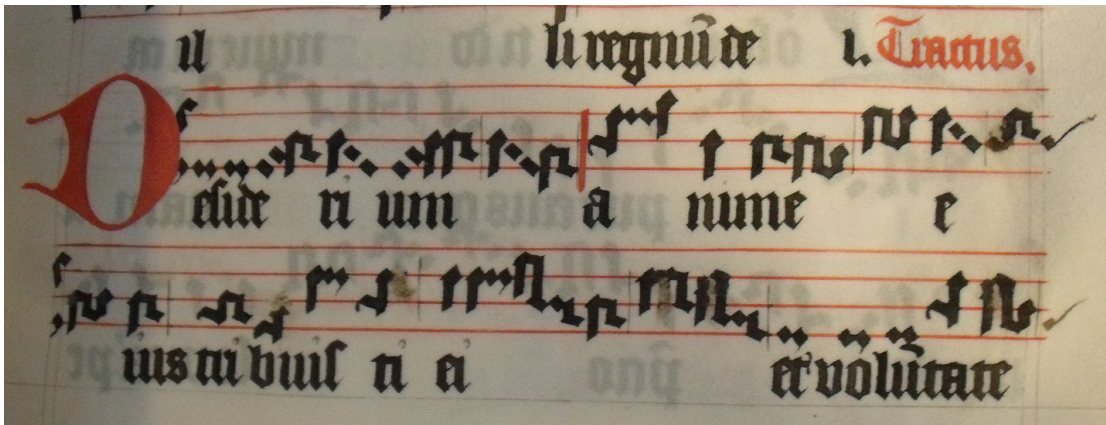 il li regnū de l. Tractus.
Deside ri um a nime e
ius tri buiſ ti ei et volūtate